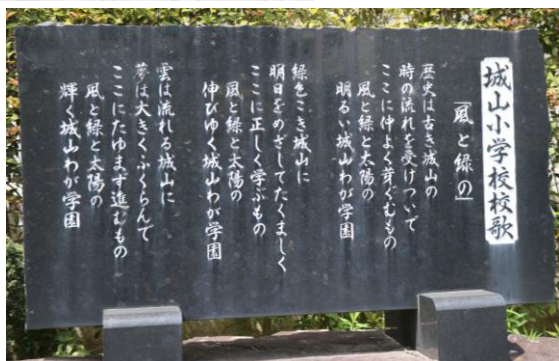 城山小学校校歌
「風と緑の」
歴史は古き城山の
時の流れを受けついで
ここに仲よく芽ぐむもの
風と緑と太陽の
明るい城山わが学園
緑色こき城山に
明日をめざしてたくましく
ここに正しく学ぶもの
風と緑と太陽の
伸びゆく城山わが学園
雲は流れる城山に
夢は大きくふくらんで
ここにたゆまず進むもの
風と緑と太陽の
輝く城山わが学園